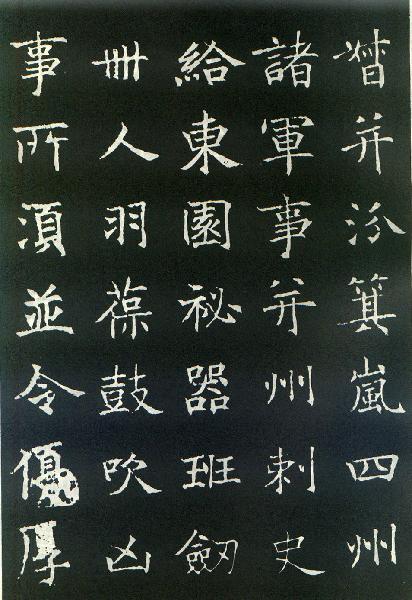 督并汾箕嵐四州
諸軍事并州刺史
給東園祕器班劒
卌人羽葆鼓吹凶
事所須並令優厚